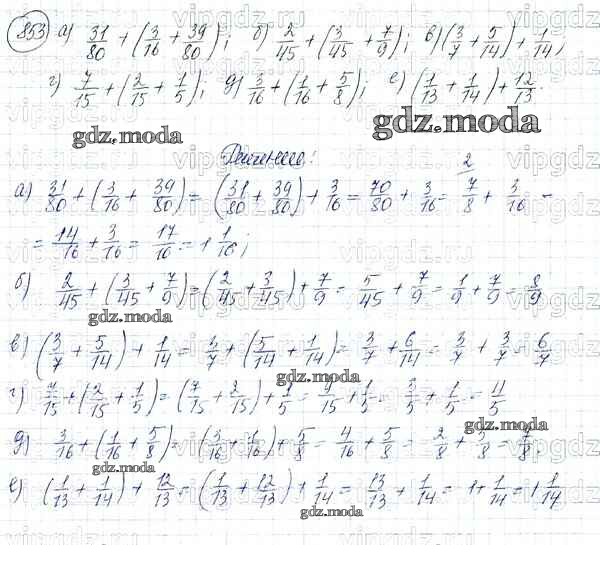 853 а) 31/80 + (3/16 + 39/80); б) 2/45 + (3/45 + 7/9); в) (3/7 + 5/14) + 1/14;
г) 7/15 + (2/15 + 1/5); д) 3/16 + (1/16 + 5/8); е) (1/13 + 1/14) + 12/13.
gdz.moda
gdz.moda
Решение:
а) 31/80 + (3/16 + 39/80) = (31/80 + 39/80) + 3/16 = 70/80 + 3/16 = 7/8 2 + 3/16 =
= 14/16 + 3/16 = 17/16 = 1 1/16;
gdz.moda
б) 2/45 + (3/45 + 7/9) = (2/45 + 3/45) + 7/9 = 5/45 + 7/9 = 1/9 + 7/9 = 8/9
gdz.moda
в) (3/7 + 5/14) + 1/14 = 3/7 + (5/14 + 1/14) = 3/7 + 6/14 = 3/7 + 3/7 = 6/7
г) 7/15 + (2/15 + 1/5) = (7/15 + 2/15) + 1/5 = 9/15 + 1/5 = 3/5 + 1/5 = 4/5
gdz.moda
gdz.moda
д) 3/16 + (1/16 + 5/8) = (3/16 + 1/16) + 5/8 = 4/16 + 5/8 = 2/8 + 5/8 = 7/8.
gdz.moda
gdz.moda
е) (1/13 + 1/14) + 12/13 = (1/13 + 12/13) + 1/14 = 13/13 + 1/14 = 1 + 1/14 = 1 1/14
gdz.moda
vipgdz.ru